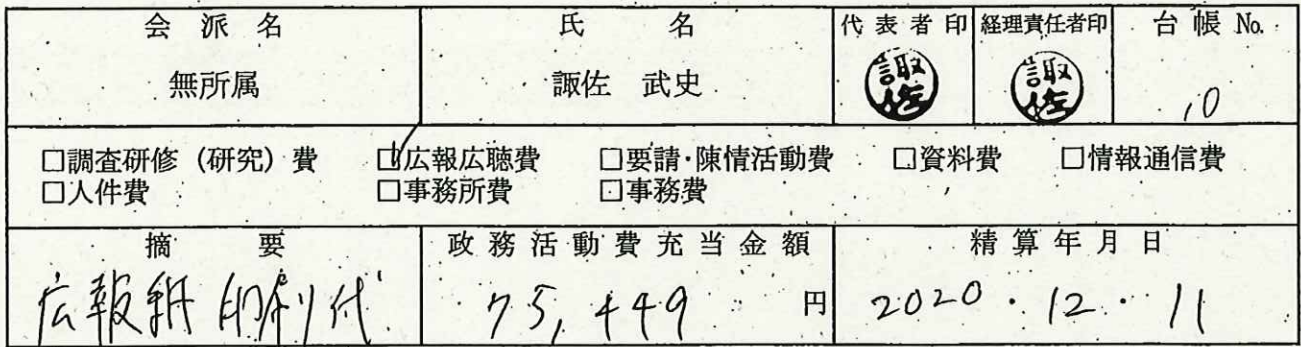 会派名 氏名 代表者印 経理責任者印 台帳No.
無所属 諏佐 武史 諏佐 諏佐 10
□調査研修(研究)費 ☑広報広聴費 □要請・陳情活動費 □資料費 □情報通信費
□人件費 □事務所費 □事務費
摘要 政務活動費充当金額 精算年月日
広報紙印刷代 75,449円 2020.12.11